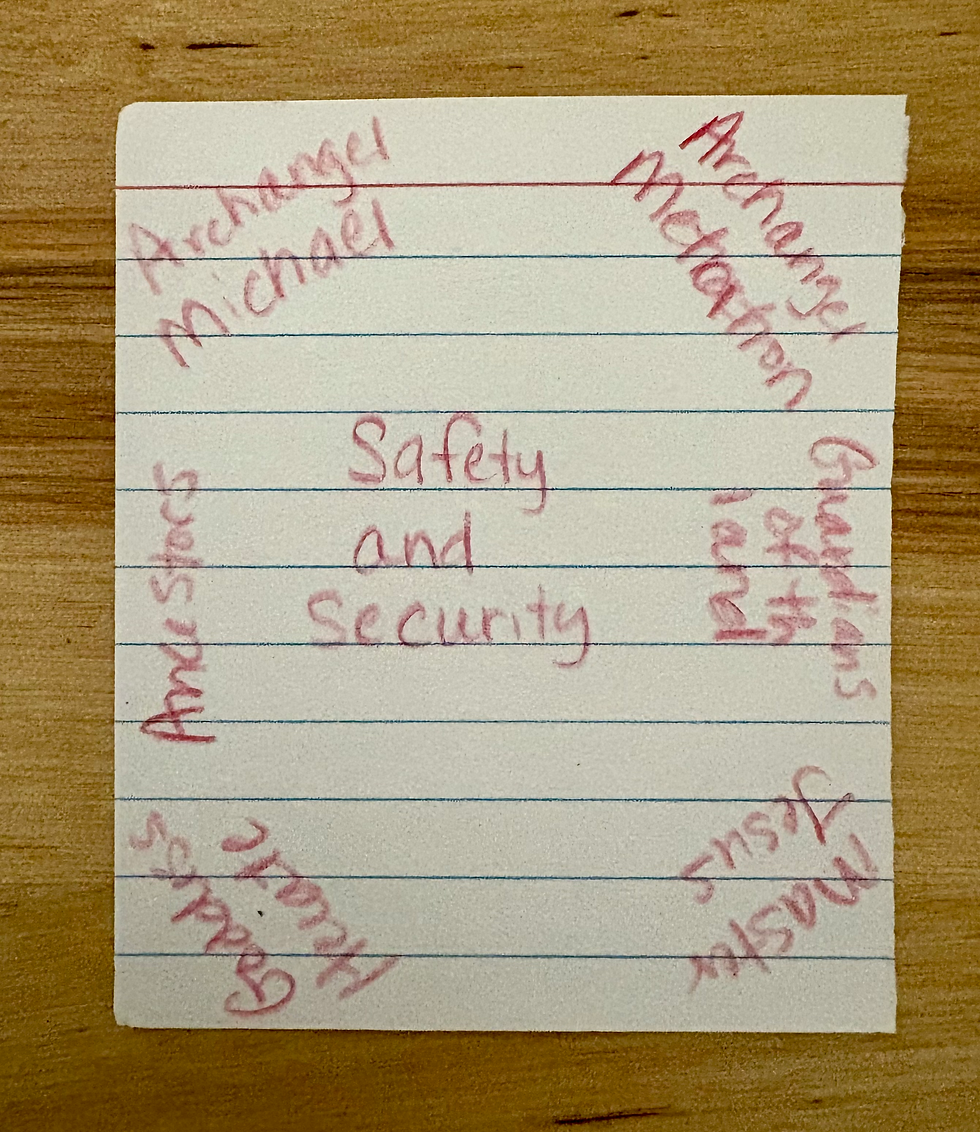 Archangel
Michael
Archangel
Metatron
Guardians
of th
land
Master
Jesus
Goddess
Hecate
Ancestors
Safety
and
Security